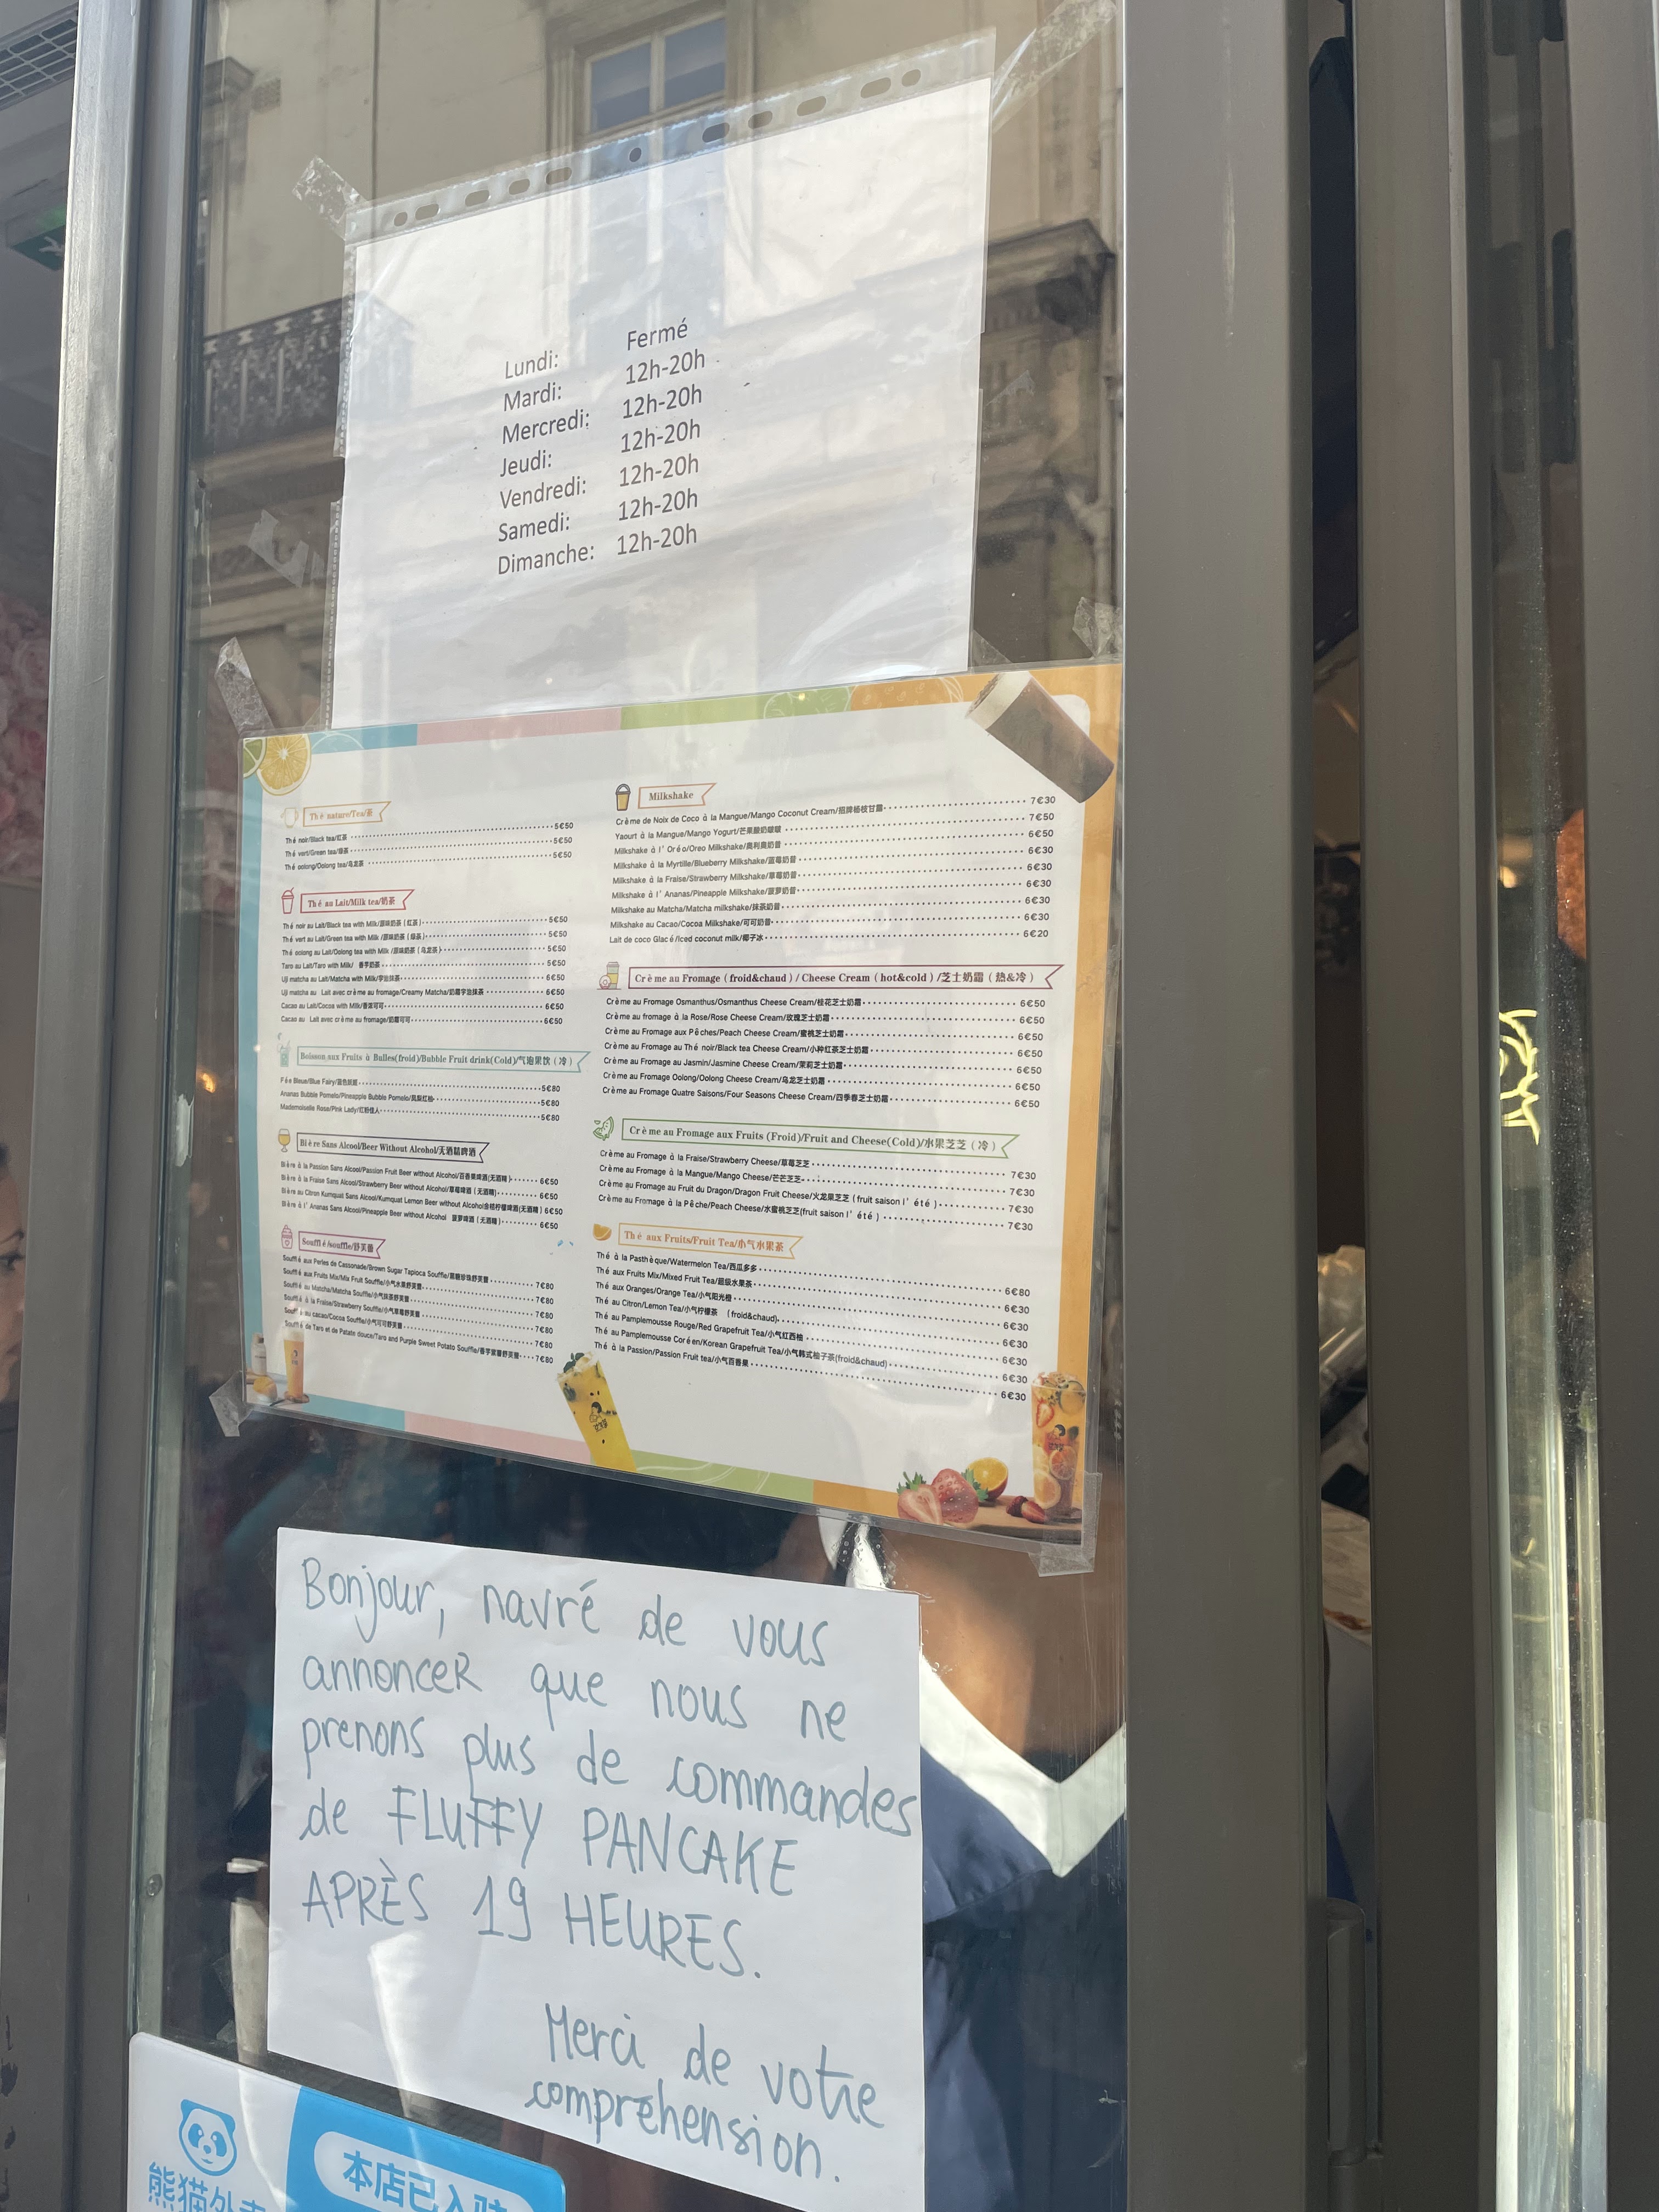 Lundi: Fermé
Mardi: 12h-20h
Mercredi: 12h-20h
Jeudi: 12h-20h
Vendredi: 12h-20h
Samedi: 12h-20h
Dimanche: 12h-20h
Thé nature/Tea/茶
Thé noir/Black tea/红茶 5€50
Thé vert/Green tea/绿茶 5€50
Thé oolong/Oolong tea/乌龙茶 5€50
Thé au Lait/Milk tea/奶茶
Thé noir au Lait/Black tea with Milk/原味奶茶 (红茶) 5€50
Thé vert au Lait/Green tea with Milk /原味奶茶 (绿茶) 5€50
Thé oolong au Lait/Oolong tea with Milk /原味奶茶 (乌龙茶) 5€50
Taro au Lait/Taro with Milk/ 香芋奶茶 5€50
Uji matcha au Lait/Matcha with Milk/宇治抹茶 6€50
Uji matcha au Lait avec crème au fromage/Creamy Matcha/奶霜宇治抹茶 6€50
Cacao au Lait/Cocoa with Milk/香浓可可 6€50
Cacao au Lait avec crème au fromage/奶霜可可 6€50
Boisson aux Fruits à Bulles(froid)/Bubble Fruit drink(Cold)/气泡果饮 (冷)
Fée Bleue/Blue Fairy/蓝色妖姬 5€80
Ananas Bubble Pomelo/Pineapple Bubble Pomelo/凤梨红柚 5€80
Mademoiselle Rose/Pink Lady/红粉佳人 5€80
Bière Sans Alcool/Beer Without Alcohol/无酒精啤酒
Bière à la Passion Sans Alcool/Passion Fruit Beer without Alcohol/百香果啤酒(无酒精) 6€50
Bière à la Fraise Sans Alcool/Strawberry Beer without Alcohol/草莓啤酒 (无酒精) 6€50
Bière au Citron Kumquat Sans Alcool/Kumquat Lemon Beer without Alcohol/金桔柠檬啤酒(无酒精) 6€50
Bière à l' Ananas Sans Alcool/Pineapple Beer without Alcohol 菠萝啤酒 (无酒精) 6€50
Soufflé/souffle/舒芙蕾
Soufflé aux Perles de Cassonade/Brown Sugar Tapioca Souffle/黑糖珍珠舒芙蕾 7€80
Soufflé aux Fruits Mix/Mix Fruit Souffle/小气水果舒芙蕾 7€80
Soufflé au Matcha/Matcha Souffle/小气抹茶舒芙蕾 7€80
Soufflé à la Fraise/Strawberry Souffle/小气草莓舒芙蕾 7€80
Soufflé au cacao/Cocoa Souffle/小气可可舒芙蕾 7€80
Soufflé de Taro et de Patate douce/Taro and Purple Sweet Potato Souffle/香芋紫薯舒芙蕾 7€80
Milkshake
Crème de Noix de Coco à la Mangue/Mango Coconut Cream/招牌杨枝甘露 7€30
Yaourt à la Mangue/Mango Yogurt/芒果酸奶啵啵 7€50
Milkshake à l' Oréo/Oreo Milkshake/奥利奥奶昔 6€50
Milkshake à la Myrtille/Blueberry Milkshake/蓝莓奶昔 6€30
Milkshake à la Fraise/Strawberry Milkshake/草莓奶昔 6€30
Milkshake à l' Ananas/Pineapple Milkshake/菠萝奶昔 6€30
Milkshake au Matcha/Matcha milkshake/抹茶奶昔 6€30
Milkshake au Cacao/Cocoa Milkshake/可可奶昔 6€30
Lait de coco Glacé/Iced coconut milk/椰子冰 6€20
Crème au Fromage (froid&chaud) / Cheese Cream (hot&cold) /芝士奶霜 (热&冷)
Crème au Fromage Osmanthus/Osmanthus Cheese Cream/桂花芝士奶霜 6€50
Crème au fromage à la Rose/Rose Cheese Cream/玫瑰芝士奶霜 6€50
Crème au Fromage aux Pêches/Peach Cheese Cream/蜜桃芝士奶霜 6€50
Crème au Fromage au Thé noir/Black tea Cheese Cream/小种红茶芝士奶霜 6€50
Crème au Fromage au Jasmin/Jasmine Cheese Cream/茉莉芝士奶霜 6€50
Crème au Fromage Oolong/Oolong Cheese Cream/乌龙芝士奶霜 6€50
Crème au Fromage Quatre Saisons/Four Seasons Cheese Cream/四季春芝士奶霜 6€50
Crème au Fromage aux Fruits (Froid)/Fruit and Cheese(Cold)/水果芝芝 (冷)
Crème au Fromage à la Fraise/Strawberry Cheese/草莓芝芝 7€30
Crème au Fromage à la Mangue/Mango Cheese/芒芒芝芝 7€30
Crème au Fromage au Fruit du Dragon/Dragon Fruit Cheese/火龙果芝芝 (fruit saison l' été) 7€30
Crème au Fromage à la Pêche/Peach Cheese/水蜜桃芝芝(fruit saison l' été) 7€30
Thé aux Fruits/Fruit Tea/小气水果茶
Thé à la Pasthèque/Watermelon Tea/西瓜多多 6€80
Thé aux Fruits Mix/Mixed Fruit Tea/超级水果茶 6€30
Thé aux Oranges/Orange Tea/小气阳光橙 6€30
Thé au Citron/Lemon Tea/小气柠檬茶 (froid&chaud) 6€30
Thé au Pamplemousse Rouge/Red Grapefruit Tea/小气红西柚 6€30
Thé au Pamplemousse Coréen/Korean Grapefruit Tea/小气韩式柚子茶(froid&chaud) 6€30
Thé à la Passion/Passion Fruit tea/小气百香果 6€30
Bonjour, navré de vous
annoncer que nous ne
prenons plus de commandes
de FLUFFY PANCAKE
APRÈS 19 HEURES.
Merci de votre
compréhension.
熊猫外卖
本店已入驻